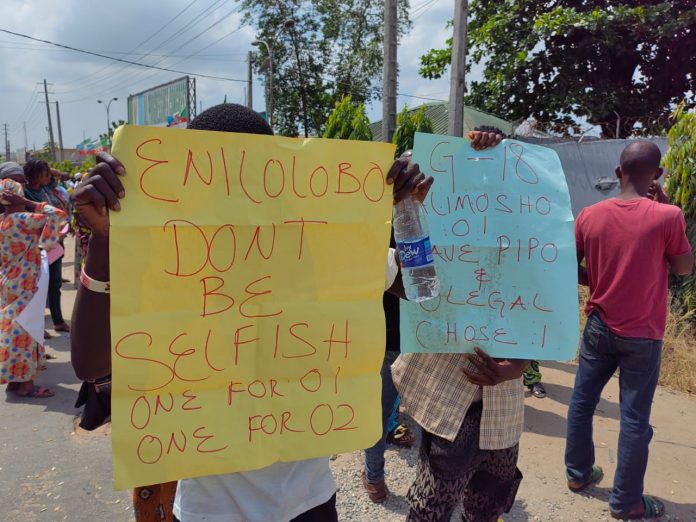 ENILOLOBO
DONT
BE
SELFISH
ONE FOR 01
ONE FOR 02
G-18
ALIMOSHO
01
PIPO
&
CHOSE 1
DEW